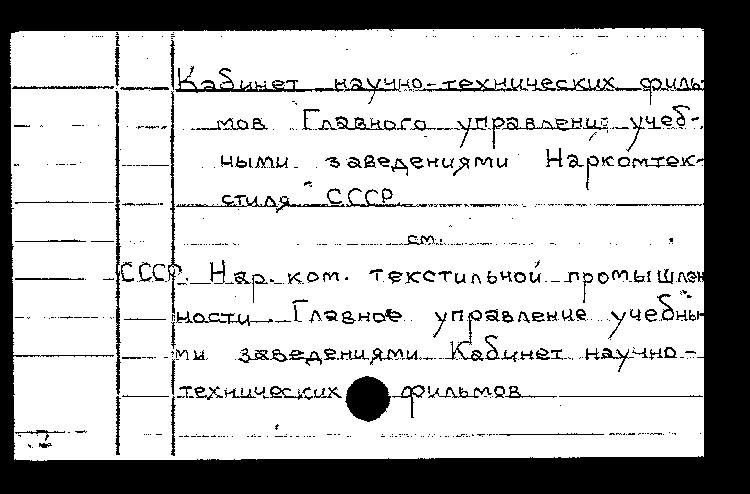 Кабинет научно-технических филь-
мов Главного управления учеб-
ными заведениями Наркомтек-
стиля СССР
см.
СССР. Нар. ком. текстильной промышлен
ности. Главное управление учебны-
ми заведениями. Кабинет научно-
технических фильмов